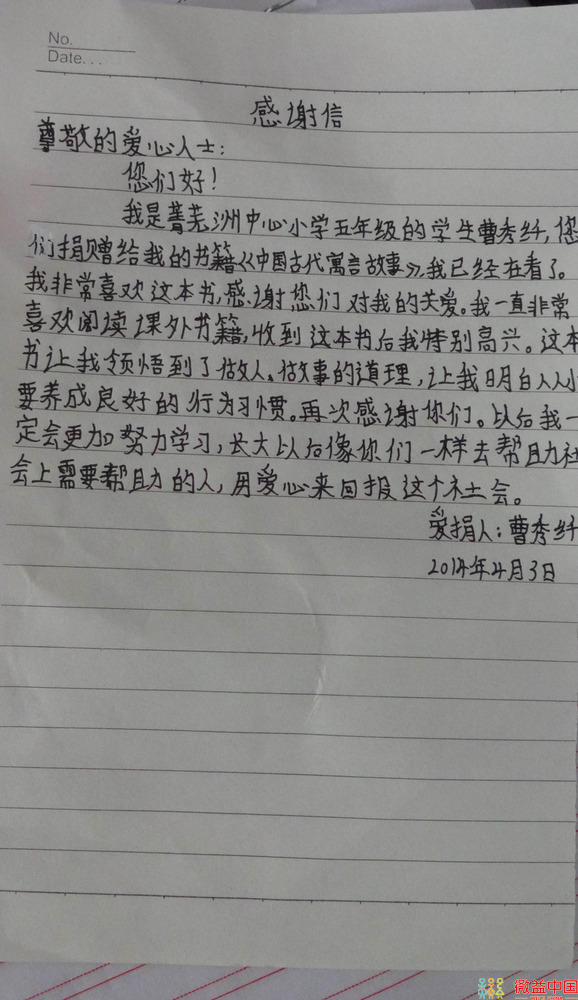 No.
Date...
感谢信
尊敬的爱心人士:
您们好!
我是菁芜洲中心小学五年级的学生曹秀纤,您
们捐赠给我的书籍《中国古代寓言故事》,我已经在看了。
我非常喜欢这本书,感谢您们对我的关爱。我一直非常
喜欢阅读课外书籍,收到这本书后我特别高兴。这本
书让我领悟到了做人、做事的道理,让我明白人从小
要养成良好的行为习惯。再次感谢你们。以后我一
定会更加努力学习,长大以后像你们一样去帮助社
会上需要帮助的人,用爱心来回报这个社会。
爱捐人:曹秀纤
2014年4月3日
微益中国